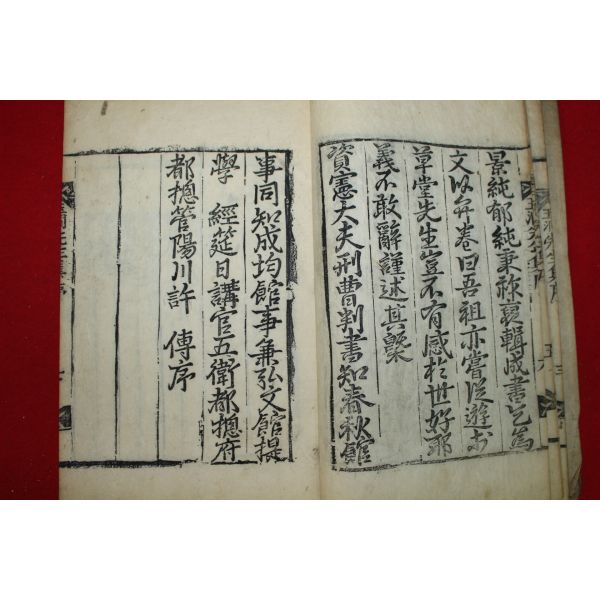 景純郁純秉㻐易輯成書乞為
文以弁卷曰吾祖亦嘗從遊於
草堂先生豈不有感於世好耶
義不敢辭謹述其槩
資憲大夫刑曹判書知春秋館
事同知成均館事兼弘文館提
學 經筵日講官五衛都摠府
都摠管陽川許 傳序